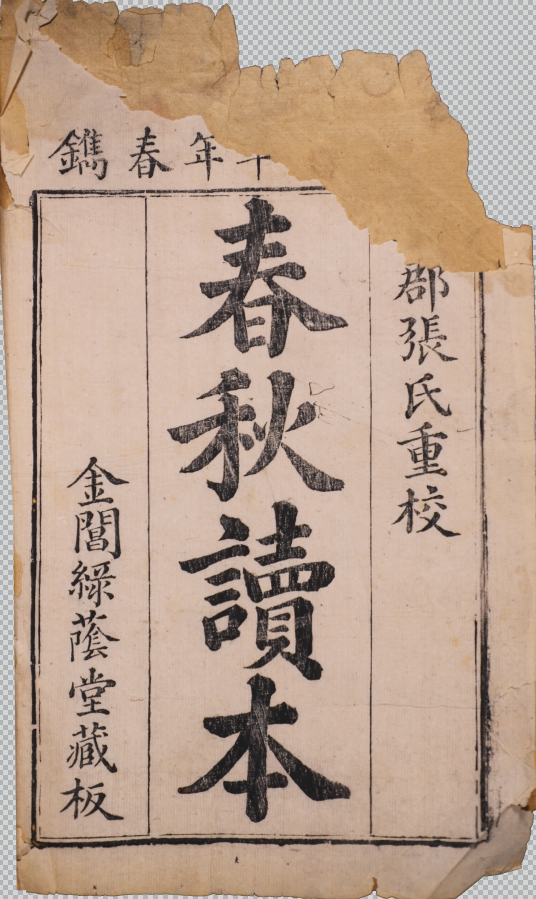 年春鐫
郡張氏重校
春秋讀本
金閶綠蔭堂藏板